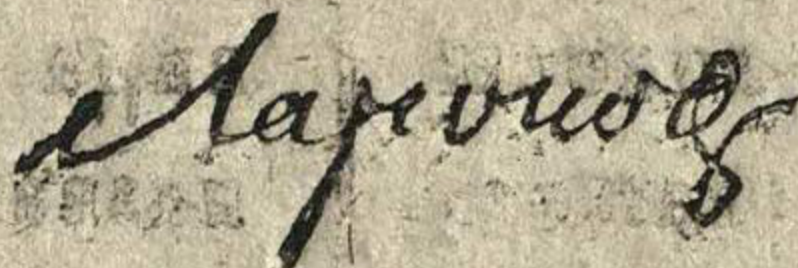 Ларионов